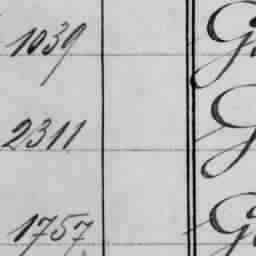 1039
2311
1757